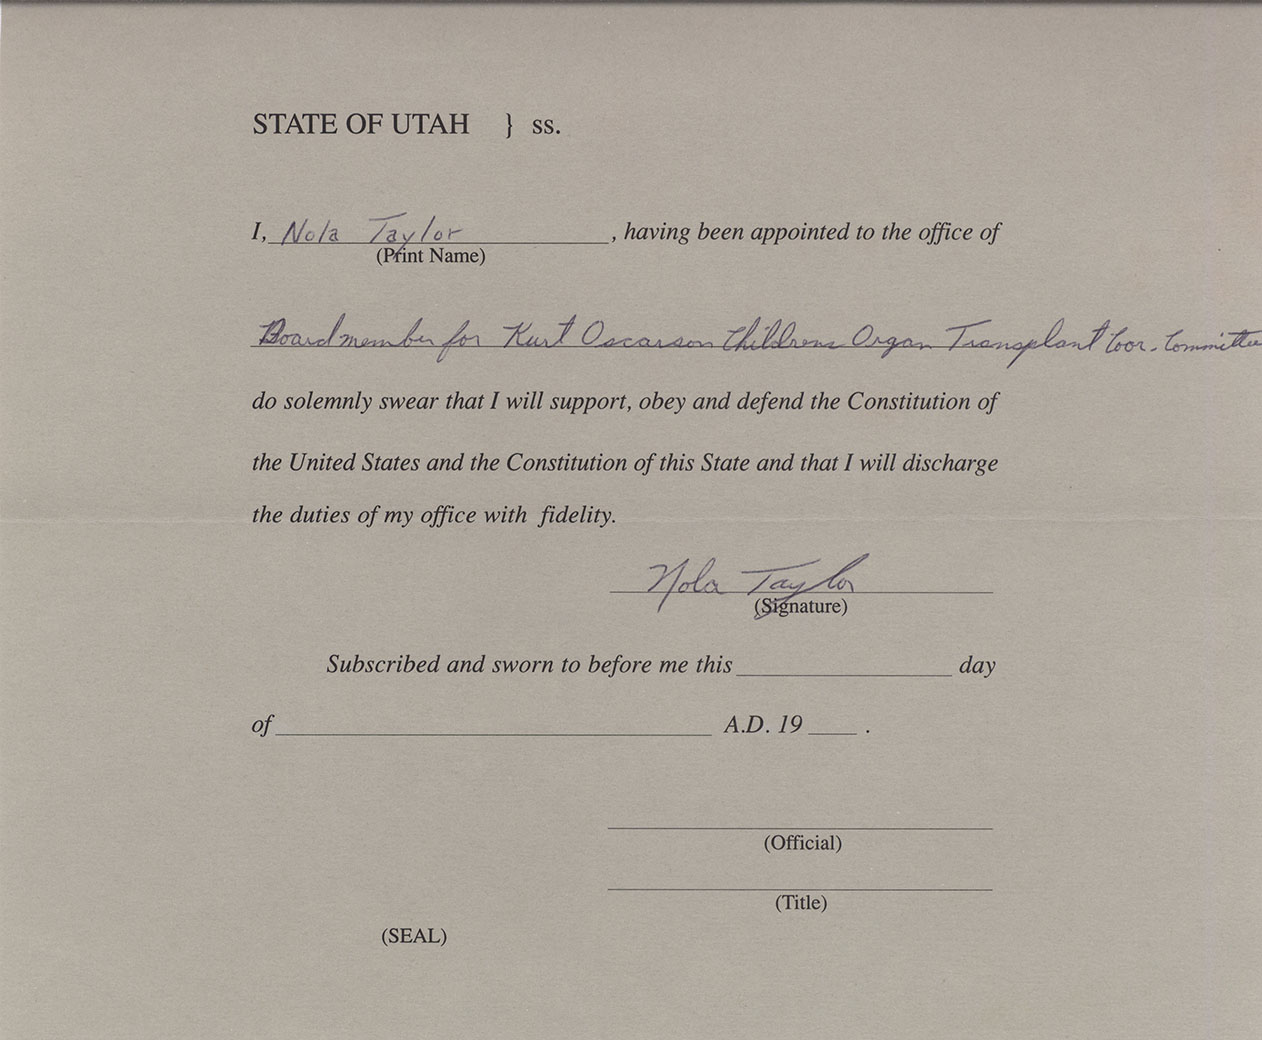 STATE OF UTAH } ss.
I, Nola Taylor, having been appointed to the office of
(Print Name)
Board member for Kurt Oscarson Childrens Organ Transplant Coor. Committee
do solemnly swear that I will support, obey and defend the Constitution of
the United States and the Constitution of this State and that I will discharge
the duties of my office with fidelity.
Nola Taylor
(Signature)
Subscribed and sworn to before me this ____ day
of ____ A.D. 19 ____ .
(Official)
(Title)
(SEAL)